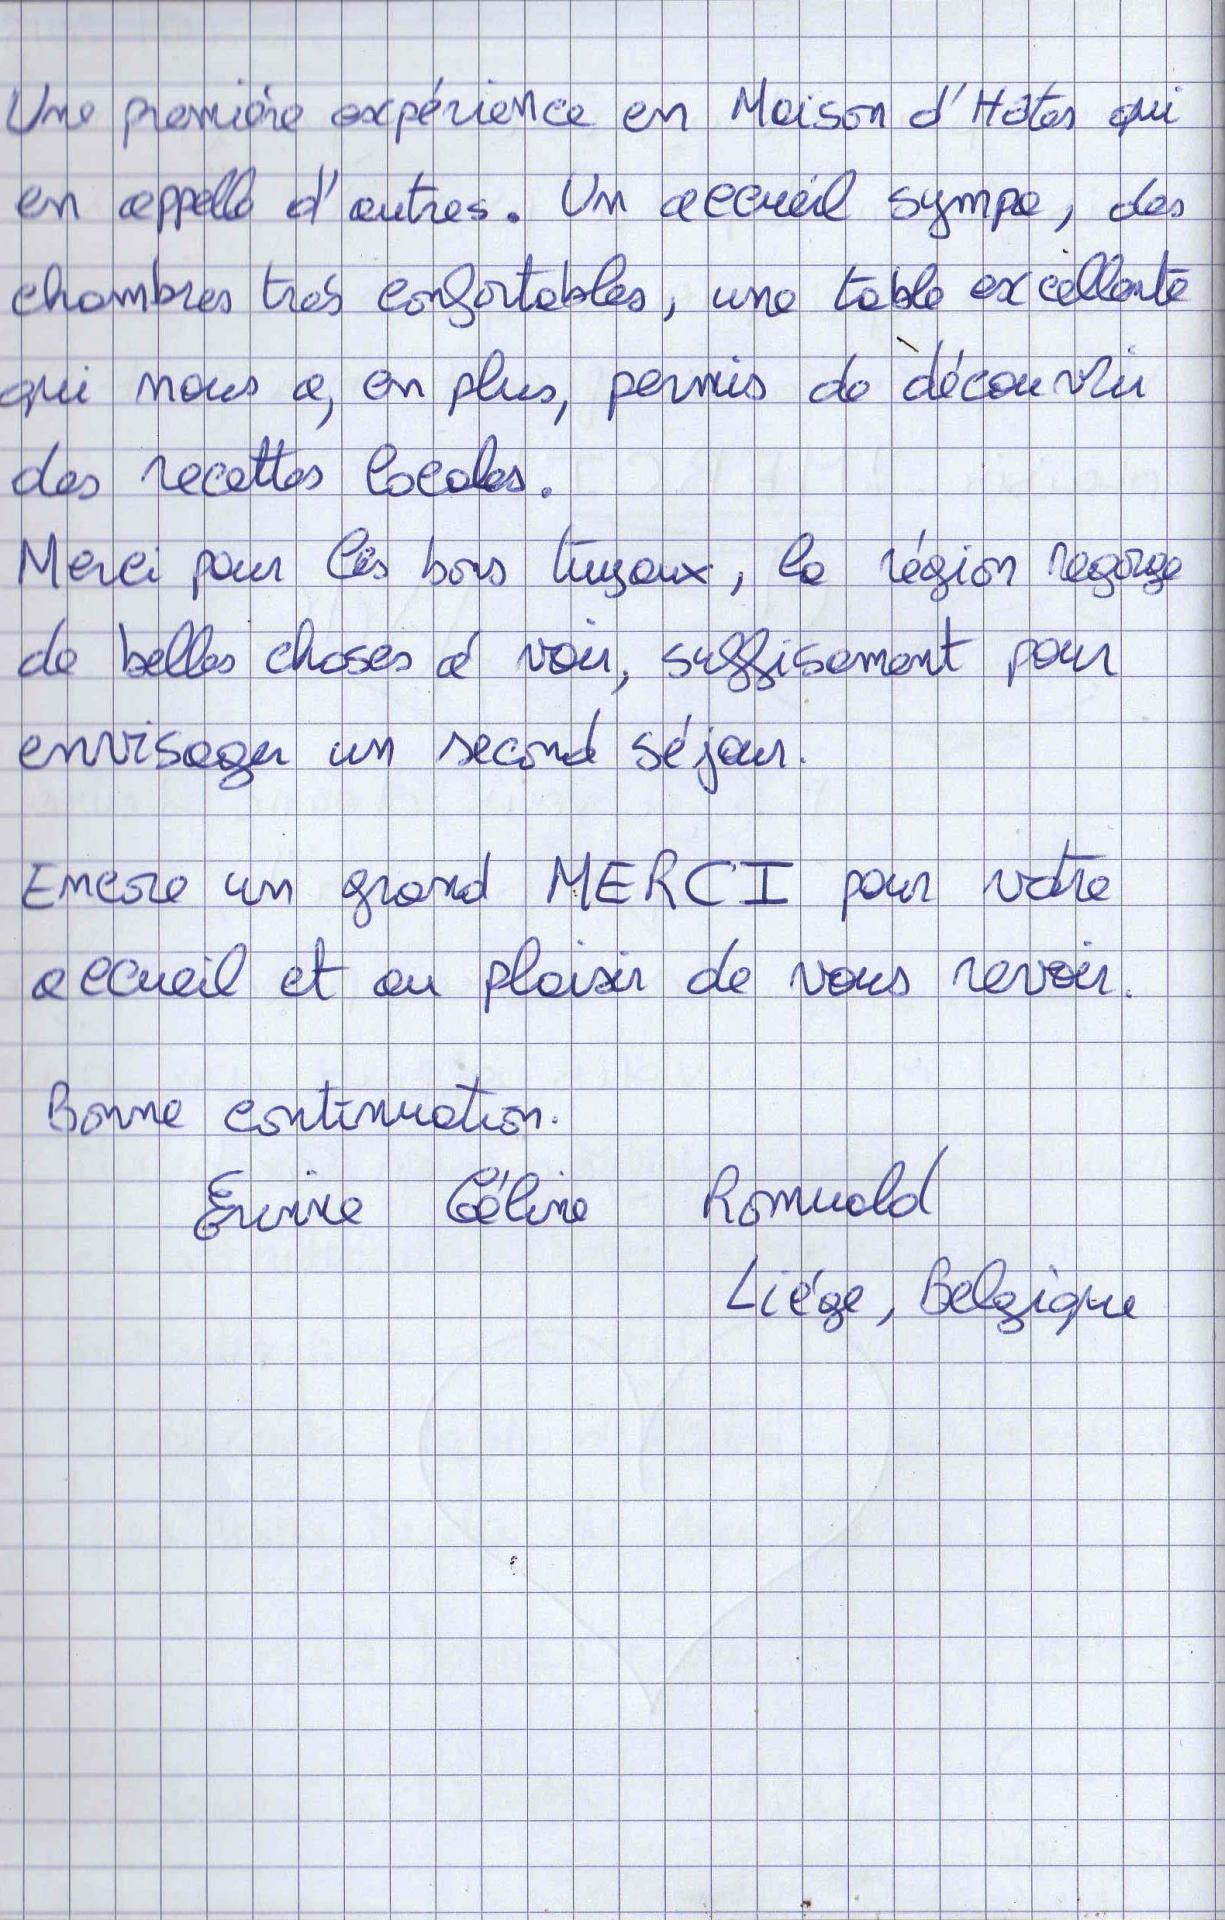 Une première expérience en Maison d'Hôtes qui
en appelle d'autres. Un accueil sympa, des
chambres très confortables, une table excellente
qui nous a, en plus, permis de découvrir
des recettes locales.
Merci pour les bons tuyaux, la région regorge
de belles choses à voir, suffisament pour
envisager un second séjour.
Encore un grand MERCI pour votre
accueil et au plaisir de vous revoir.
Bonne continuation.
Céline Romuald
Liége, Belgique